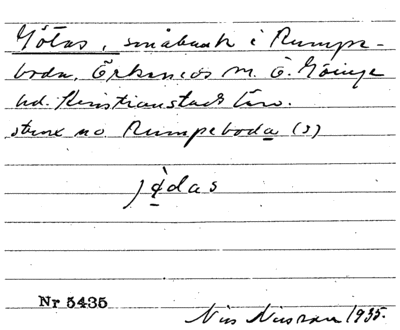 Götas, småbruk i Rumpe-
boda, Örkeneds sn. Ö. Göinge
hd. Kristianstads län.
strax no Rumpeboda (s)
jødas
Nr 5435 Nils Nilsson 1935.